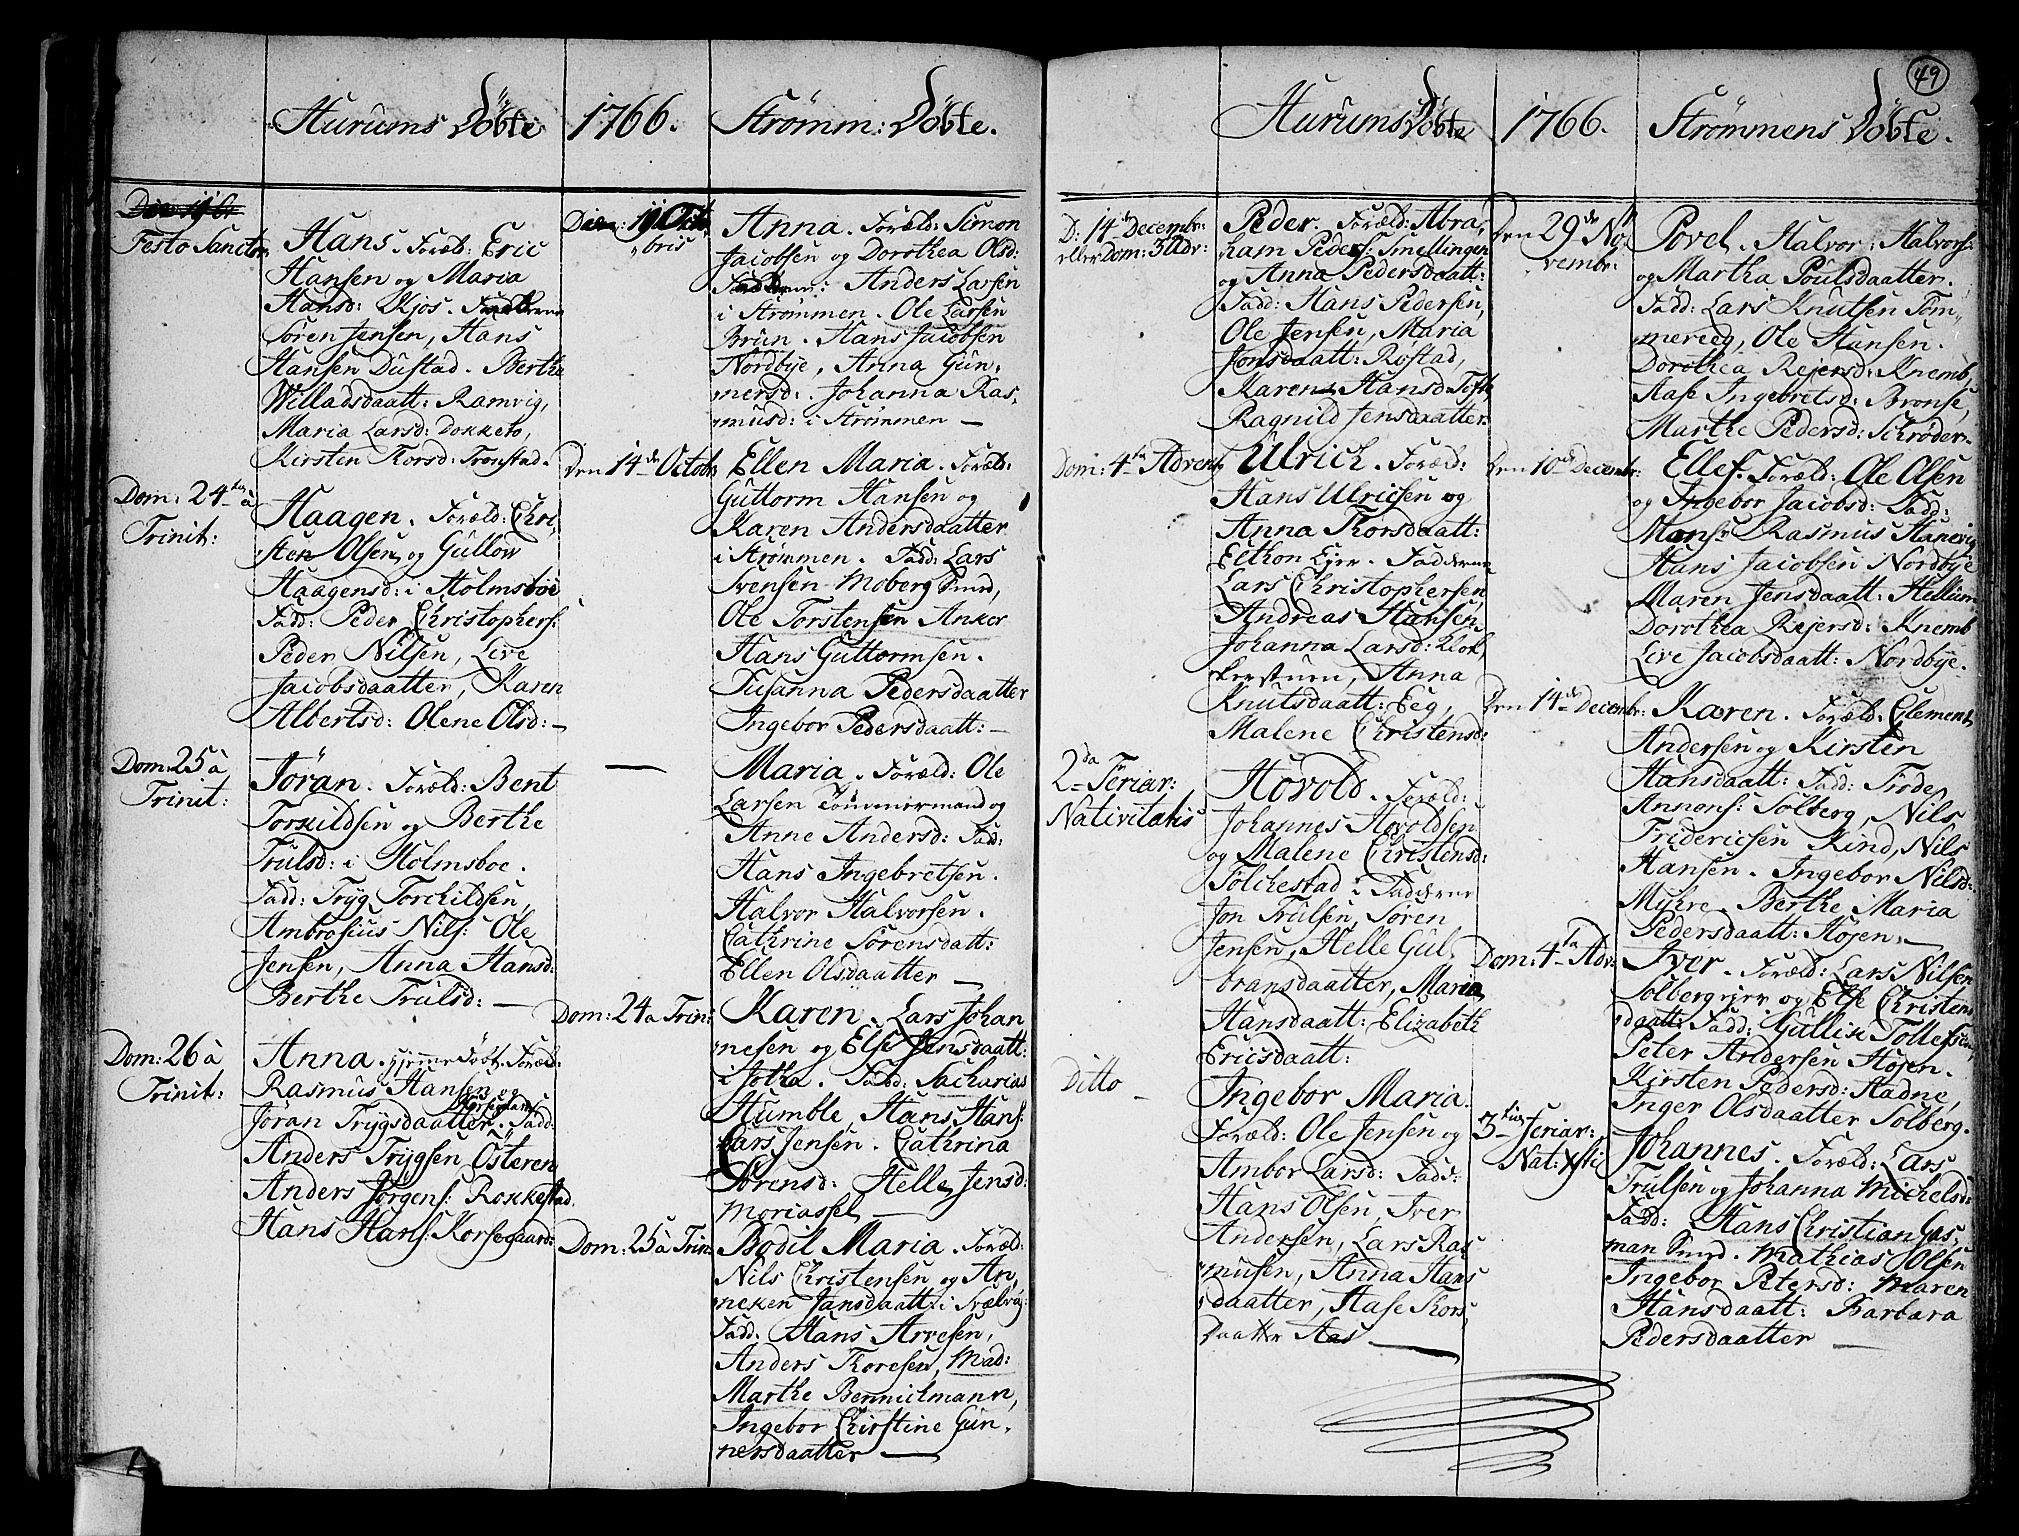 Hurums Döbte
1766.
Strømm: Døbte.
Festo Sanctor
Hans. Foræld: Eric
Hansen og Maria
Hansd: Kjos. Fadderne
Søren Jensen, Hans
Hansen Dustad. Berthe
Willadsdaatt: Ramvig,
Maria Larsd: Dokketo,
Kirsten Thorsd: Tronstad.
Dom: 24 à
Trinit:
Haagen. Foræld: Chri,
sten Olsen og Gullow
Haagensd: i Holmsboe
Fadd: Peder Christophers:
Peder Nilsen, Live
Jacobsdaatter, Karen
Albertsd: Olene Olsd: —
Dom: 25 à
Trinit:
Jöran. Foræld: Bent
Torkildsen og Berthe
Trulsd: i Holmsboe.
Fadd: Tryg Torchildsen,
Ambrosius Nils: Ole
Jensen, Anna Hansd:
Berthe Trulsd: —
Dom: 26 à
Trinit:
Anna. hjemmedöbt. Foræld:
Rasmus Hansen og
Jöran Trygsdaatter. Fadd:
Anders Trygsen Österen
Anders Jørgens: Rokkestad
Hans Hans: Korsegaard:
Octo
bris
Anna. Foræld: Simon
Jacobsen og Dorothea Olsd:
Anders Larsen
i Strømmen. Ole Larsen
Brun. Hans Jacobsen
Nordbye, Anna Gün,
mersd: Johanna Ras,
musd: i Strømmen —
Den 14 de Octobr
Ellen Maria. Foræld:
Guttorm Hansen og
Karen Andersdaatter
i Strømmen. Fadd: Lars
Svensen Moberg Smed,
Ole Torstensen Anker
Hans Guttormsen.
Susanna Pedersdaatter
Ingebor Pedersdaatt: —
—
Maria. Foræld: Ole
Larsen Tömmermand og
Anne Andersd: Fad:
Hans Ingebretsen.
Halvor Halvorsen.
Cathrine Sörensdatt:
Ellen Olsdaatter —
Dom: 24 a Trin:
Karen. Lars Johan
nesen og Else Jensdaatt:
i Jotha. Fadd: Sacharias
Humble, Hans Hans:
Lars Jensen. Cathrina
Sörensd: Helle Jensd:
Moriassel —
Dom: 25 à Trin:
Bodil Maria. Foræld:
Nils Christensen og An,
neken Jansdaatt: i Svælvig:
Fadd: Hans Arvesen,
Anders Thoresen, Mad:
Marthe Bennichmann,
Ingebor Christine Gün,
nersdaatter —
49
Hurums Döbte
1766.
Strømmens Döbte.
D: 14 Decembr:
eller Dom: 3 Adv:
Peder. Foræld: Abra,
ham Peders: Smellingen
og Anna Pedersdaatt:
Fadd: Hans Pedersen,
Ole Jensen, Maria
Jonsdaatt: Rostad,
Karen Hansd: Tofte
Ragnild Jensdaatter
Dom: 4 Advent
Ulrich. Foræld:
Hans Ulricsen og
Anna Thorsdaatt:
Elthon Ejer. Fadderne
Lars Christophersen,
Andreas Hansen,
Johanna Larsd: Klok,
kerstuen, Anna
Knutsdaatt: Eeg,
Malene Christensd:
2da Feriar:
Nativitatis
Hovold. Foræld:
Johannes Hovoldsen
og Malene Christensd:
Tolchestad. Fadderne
Jon Trulsen, Sören
Jensen, Helle Gul,
bransdaatter, Maria
Hansdaatt: Elizabeth
Ericsdaatt:
Ditto —
Ingebor Maria.
Foræld: Ole Jensen og
Ambor Larsd: Fadd:
Hans Olsen, Iver
Andersen, Lars Ras
musen, Anna Hans
daatter, Aase Thors
daatter Aas —
Den 29 de No,
vembr:
Povel. Halvor Halvors:
og Martha Poulsdaatter.
Fadd: Lars Knutsen Tom,
mereeg, Ole Hansen.
Dorothea Rejersd: Knemb,
Aase Ingebretsd: Bronse,
Marthe Pedersd: Schröder.
Den 10 de Decembr:
Ellef. Foræld: Ole Olsen
og Ingebor Jacobsd: Fadd:
Monsr Rasmus Hanevig
Hans Jacobsen Nordbye
Maren Jensdaatt: Hellum
Dorothea Rejersd: Knemb
Live Jacobsdaatt: Nordbye.
Den 14 de Decembr:
Karen. Foræld: Clement
Andersen og Kirsten
Hansdaatt: Fadd: Frode
Annons: Solberg, Nils
Fridericsen Kind, Nils
Hansen. Ingebor Nilsd:
Myhre. Berthe Maria
Pedersdaatt: Højen —
Dom: 4ta Adv:
Iver. Foræld: Lars Nilsen
Solberg ejer og Else Christens
daatt: Fadd: Gullik Tollefsen,
Peter Andersen Højen.
Kirsten Pedersd: Hadne,
Inger Olsdaatter Solberg.
3tia Feriar:
Nat: Xsti
Johannes. Foræld: Lars
Trulsen og Johanna Michelsd:
Fadd: Hans Christian Gas,
man Smed. Mathias Olsen
Ingebor Petersd: Maren
Hansdaatt: Barbara
Pedersdaatter —